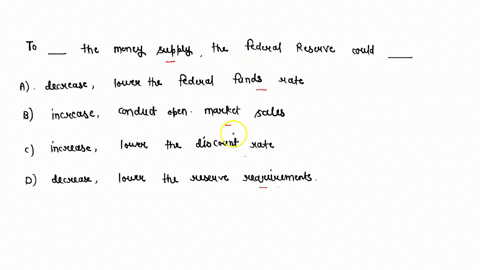 To ___ the money supply, the federal Reserve could ___
A). decrease, lower the federal funds rate
B) increase, conduct open. market sales
C) increase, lower the discount rate
D) decrease, lower the reserve requirements.